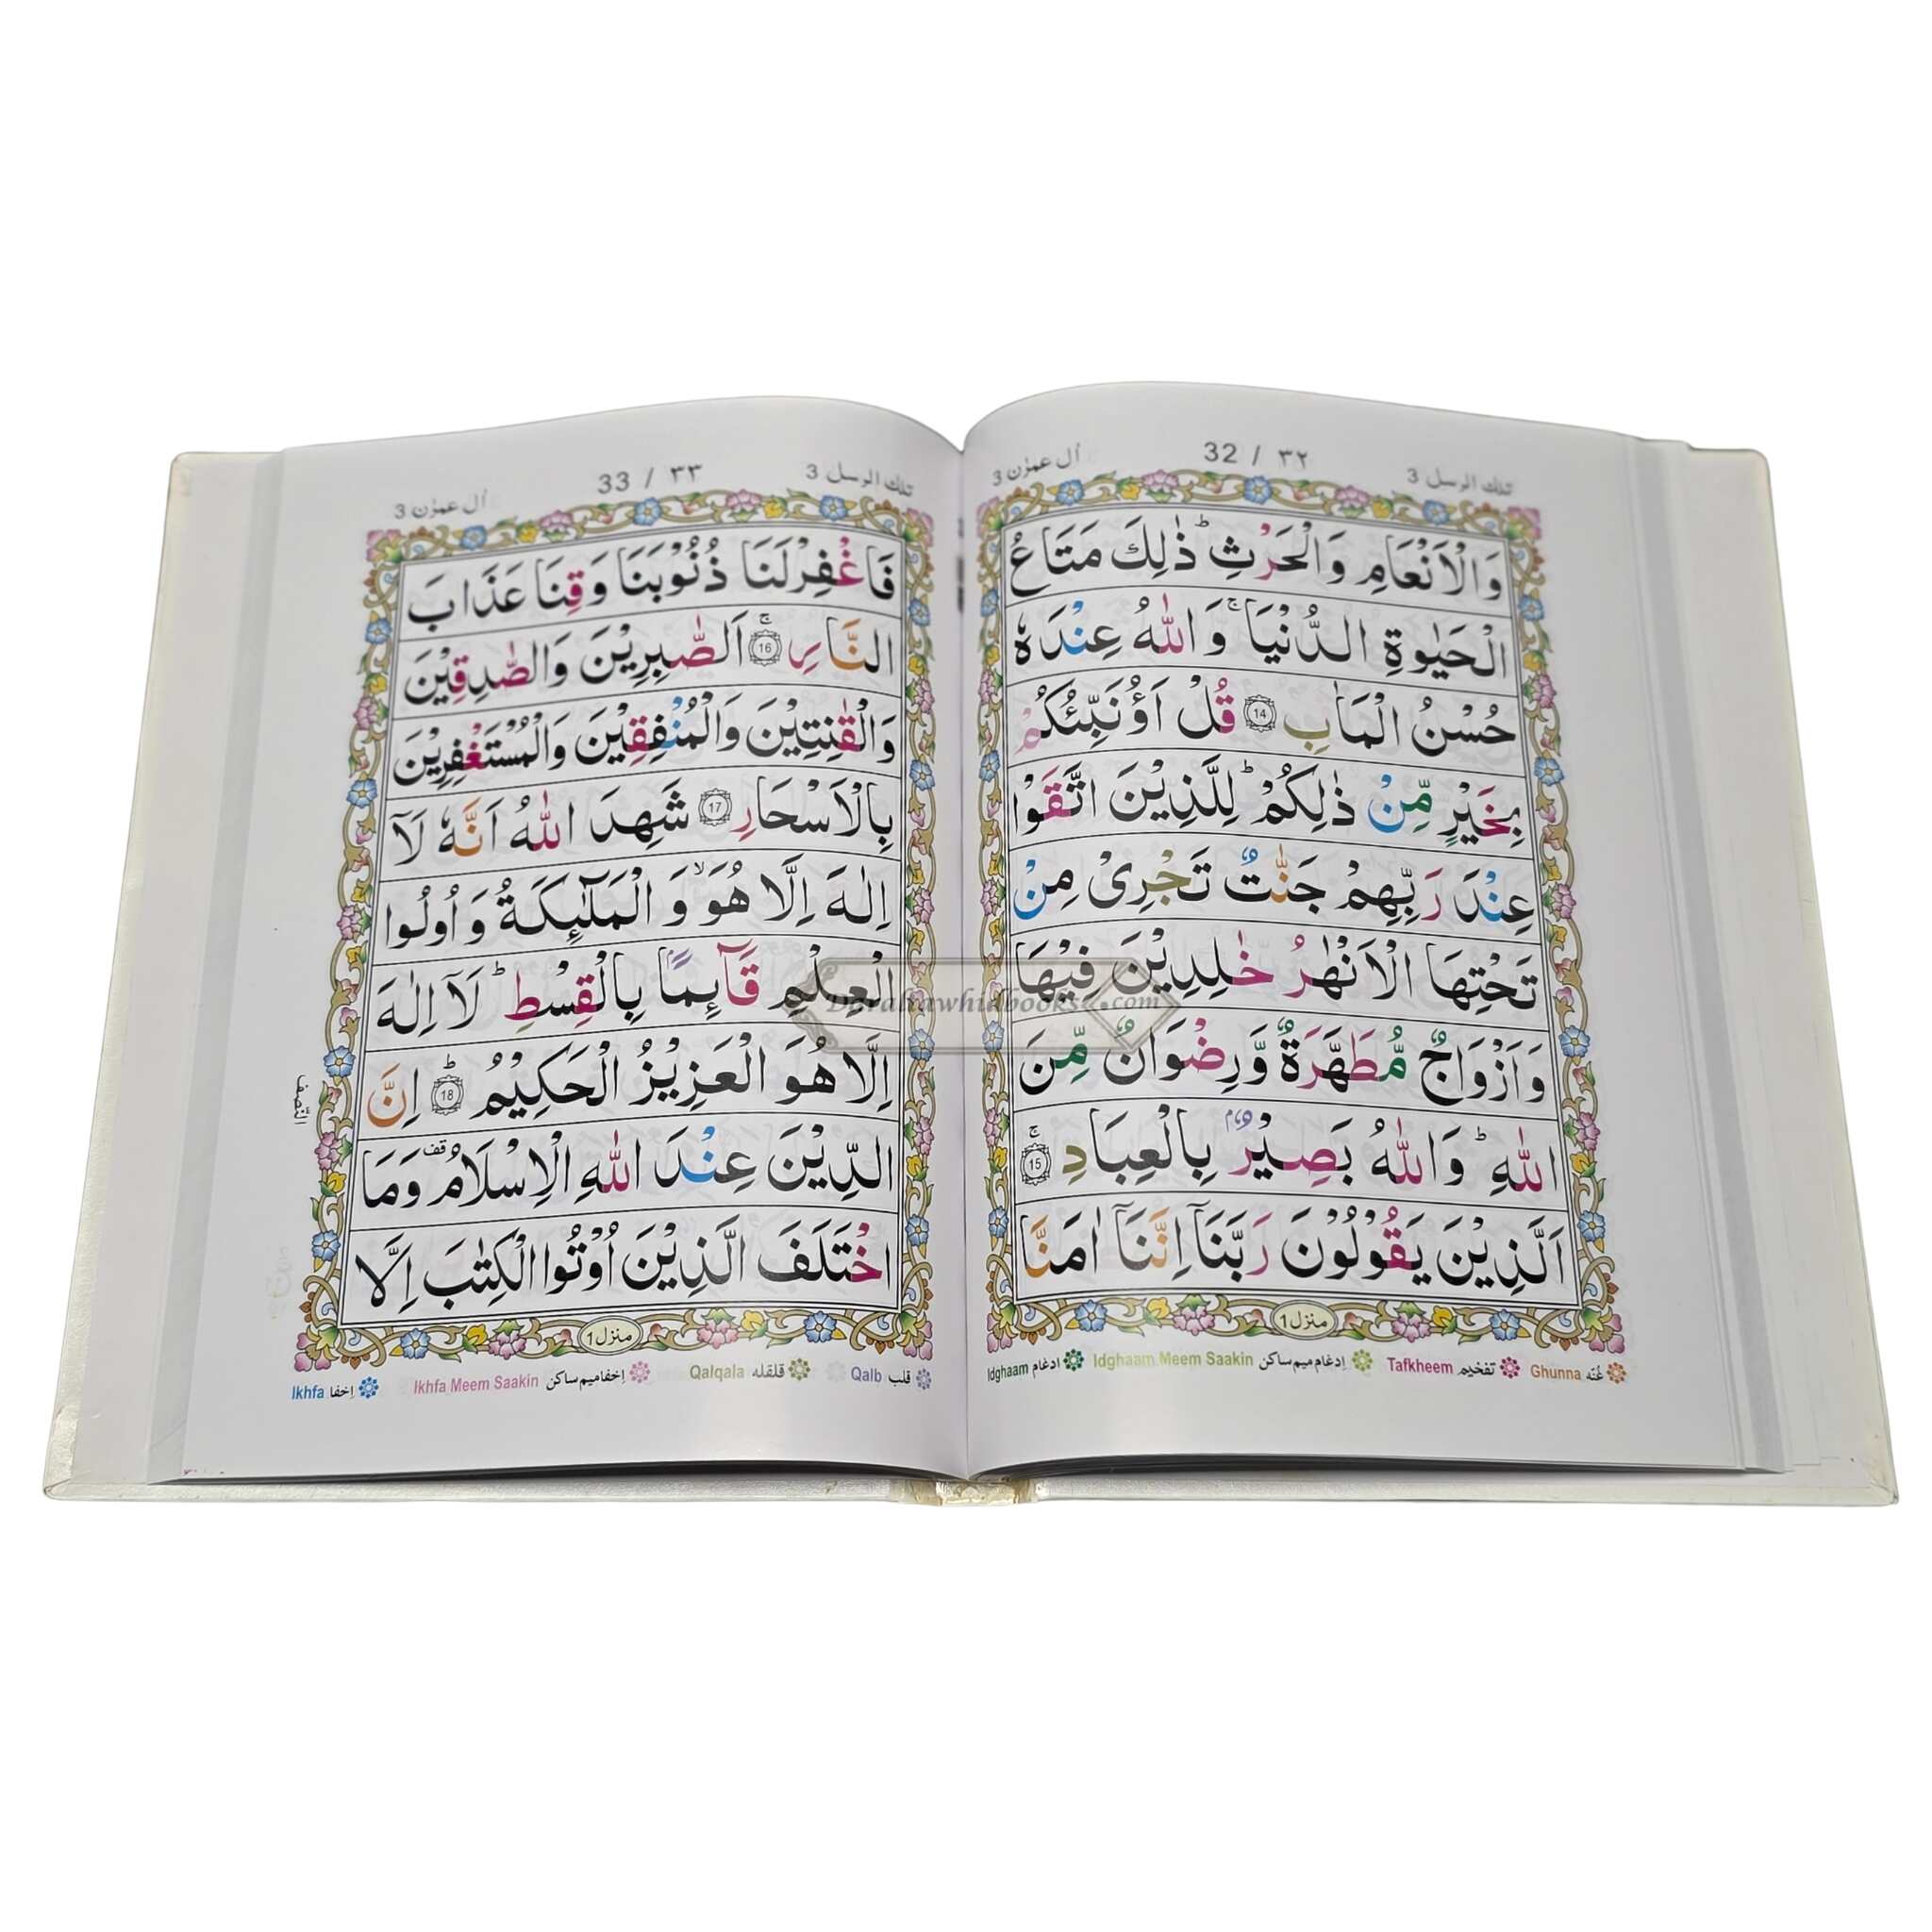 تلك الرسل 3
32 / ٣٢
اٰل عمرٰن 3
وَالْاَنْعَامِ وَالْحَرْثِ ؕ ذٰلِكَ مَتَاعُ
الْحَيٰوةِ الدُّنْيَا ۚ وَاللّٰهُ عِنْدَهٗ
حُسْنُ الْمَاٰبِ 14 قُلْ اَؤُنَبِّئُكُمْ
بِخَيْرٍ مِّنْ ذٰلِكُمْ ؕ لِلَّذِيْنَ اتَّقَوْا
عِنْدَ رَبِّهِمْ جَنّٰتٌ تَجْرِىْ مِنْ
تَحْتِهَا الْاَنْهٰرُ خٰلِدِيْنَ فِيْهَا
وَاَزْوَاجٌ مُّطَهَّرَةٌ وَّرِضْوَانٌ مِّنَ
اللّٰهِ ؕ وَاللّٰهُ بَصِيْرٌۢ بِالْعِبَادِ ۚ 15
اَلَّذِيْنَ يَقُوْلُوْنَ رَبَّنَاۤ اِنَّنَاۤ اٰمَنَّا
منزل 1
Ghunna غُنّه Tafkheem تفخيم Idghaam Meem Saakin اِدغام ميم ساكن Idghaam ادغام
تلك الرسل 3
33 / ٣٣
اٰل عمرٰن 3
فَاغْفِرْلَنَا ذُنُوْبَنَا وَقِنَا عَذَابَ
النَّارِ ۚ 16 اَلصّٰبِرِيْنَ وَالصّٰدِقِيْنَ
وَالْقٰنِتِيْنَ وَالْمُنْفِقِيْنَ وَالْمُسْتَغْفِرِيْنَ
بِالْاَسْحَارِ 17 شَهِدَ اللّٰهُ اَنَّهٗ لَاۤ
اِلٰهَ اِلَّا هُوَ ۙ وَالْمَلٰٓئِكَةُ وَاُولُوا
الْعِلْمِ قَآئِمًاۢ بِالْقِسْطِ ؕ لَاۤ اِلٰهَ
اِلَّا هُوَ الْعَزِيْزُ الْحَكِيْمُ ؕ 18 اِنَّ
الدِّيْنَ عِنْدَ اللّٰهِ الْاِسْلَامُ قف وَمَا
اخْتَلَفَ الَّذِيْنَ اُوْتُوا الْكِتٰبَ اِلَّا
النّصف
منزل 1
Qalb قلب Qalqala قلقله Ikhfa Meem Saakin اِخفا ميم ساكن Ikhfa اِخفا
Daraltawhidbooks.com